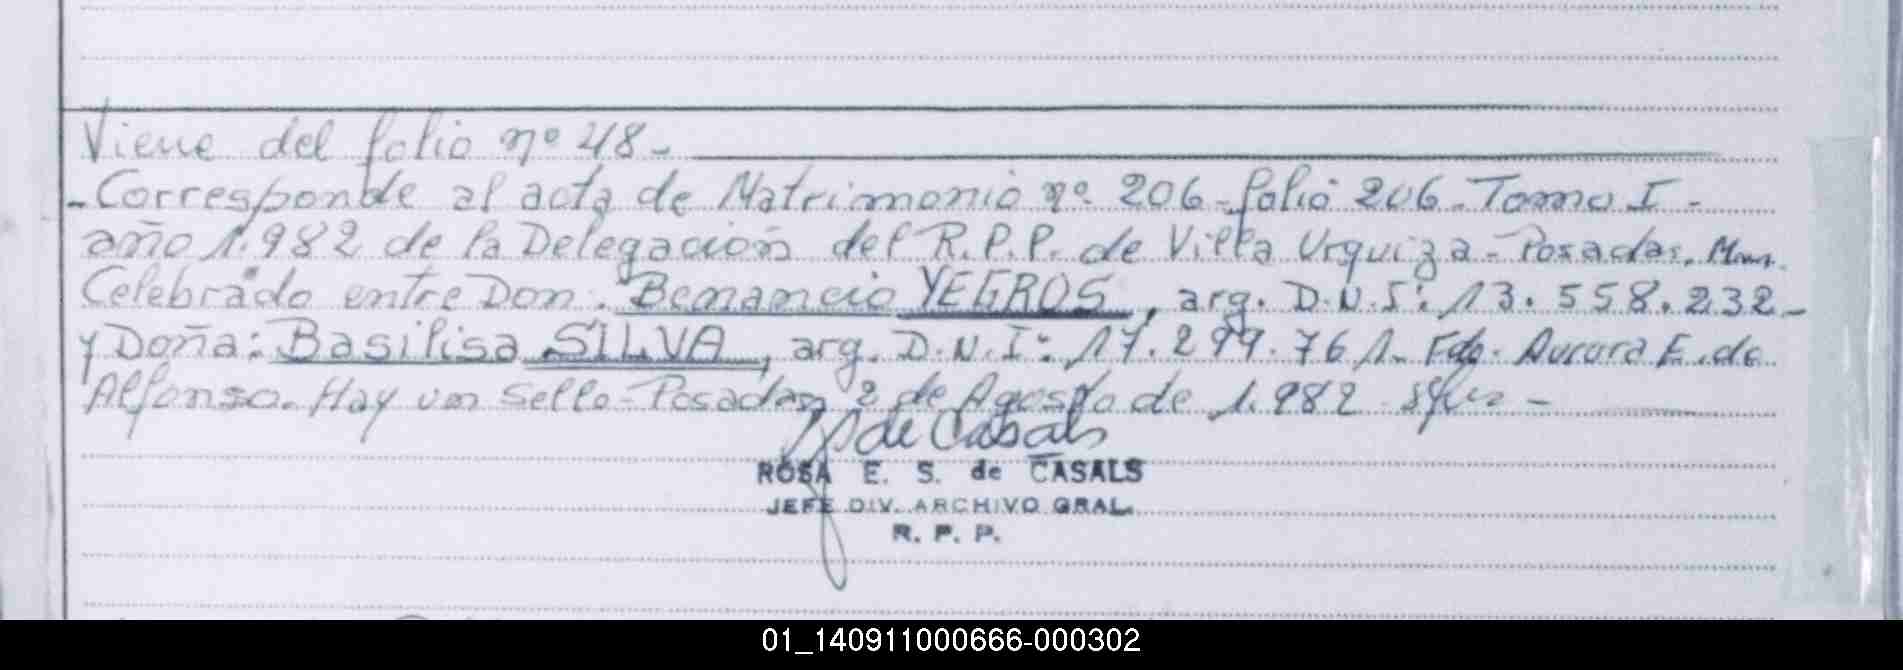 Viene del folio nº 48.-
-Corresponde al acta de Matrimonio nº 206-folio 206-Tomo I-
año 1.982 de la Delegación del R.P.P. de Villa Urquiza-Posadas, Mnes.
Celebrado entre Don: Benancio YEGROS, arg. D.N.I: 13.558.232-
y Doña: Basilisa SILVA, arg. D.N.I: 17.299.761. Fdo. Aurora E. de
Alfonso. Hay un sello-Posadas, 2 de Agosto de 1.982
de Casals
ROSA E. S. de CASALS
JEFE DIV. ARCHIVO GRAL.
R. P. P.
01_140911000666-000302